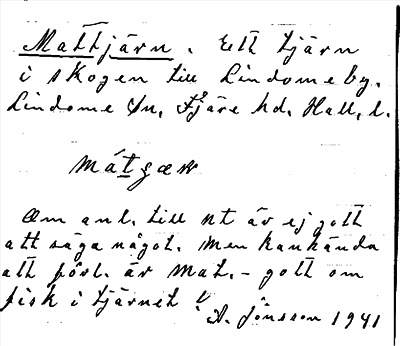 Mattjärn. Ett tjärn
i skogen till Lindomeby.
Lindome Sn, Fjäre hd. Hall. l.
Om anl. till nt är ej gott
att säga något. Men kankända
att förl. är mat. - gott om
fisk i tjärnet!
A. Jönsson 1941